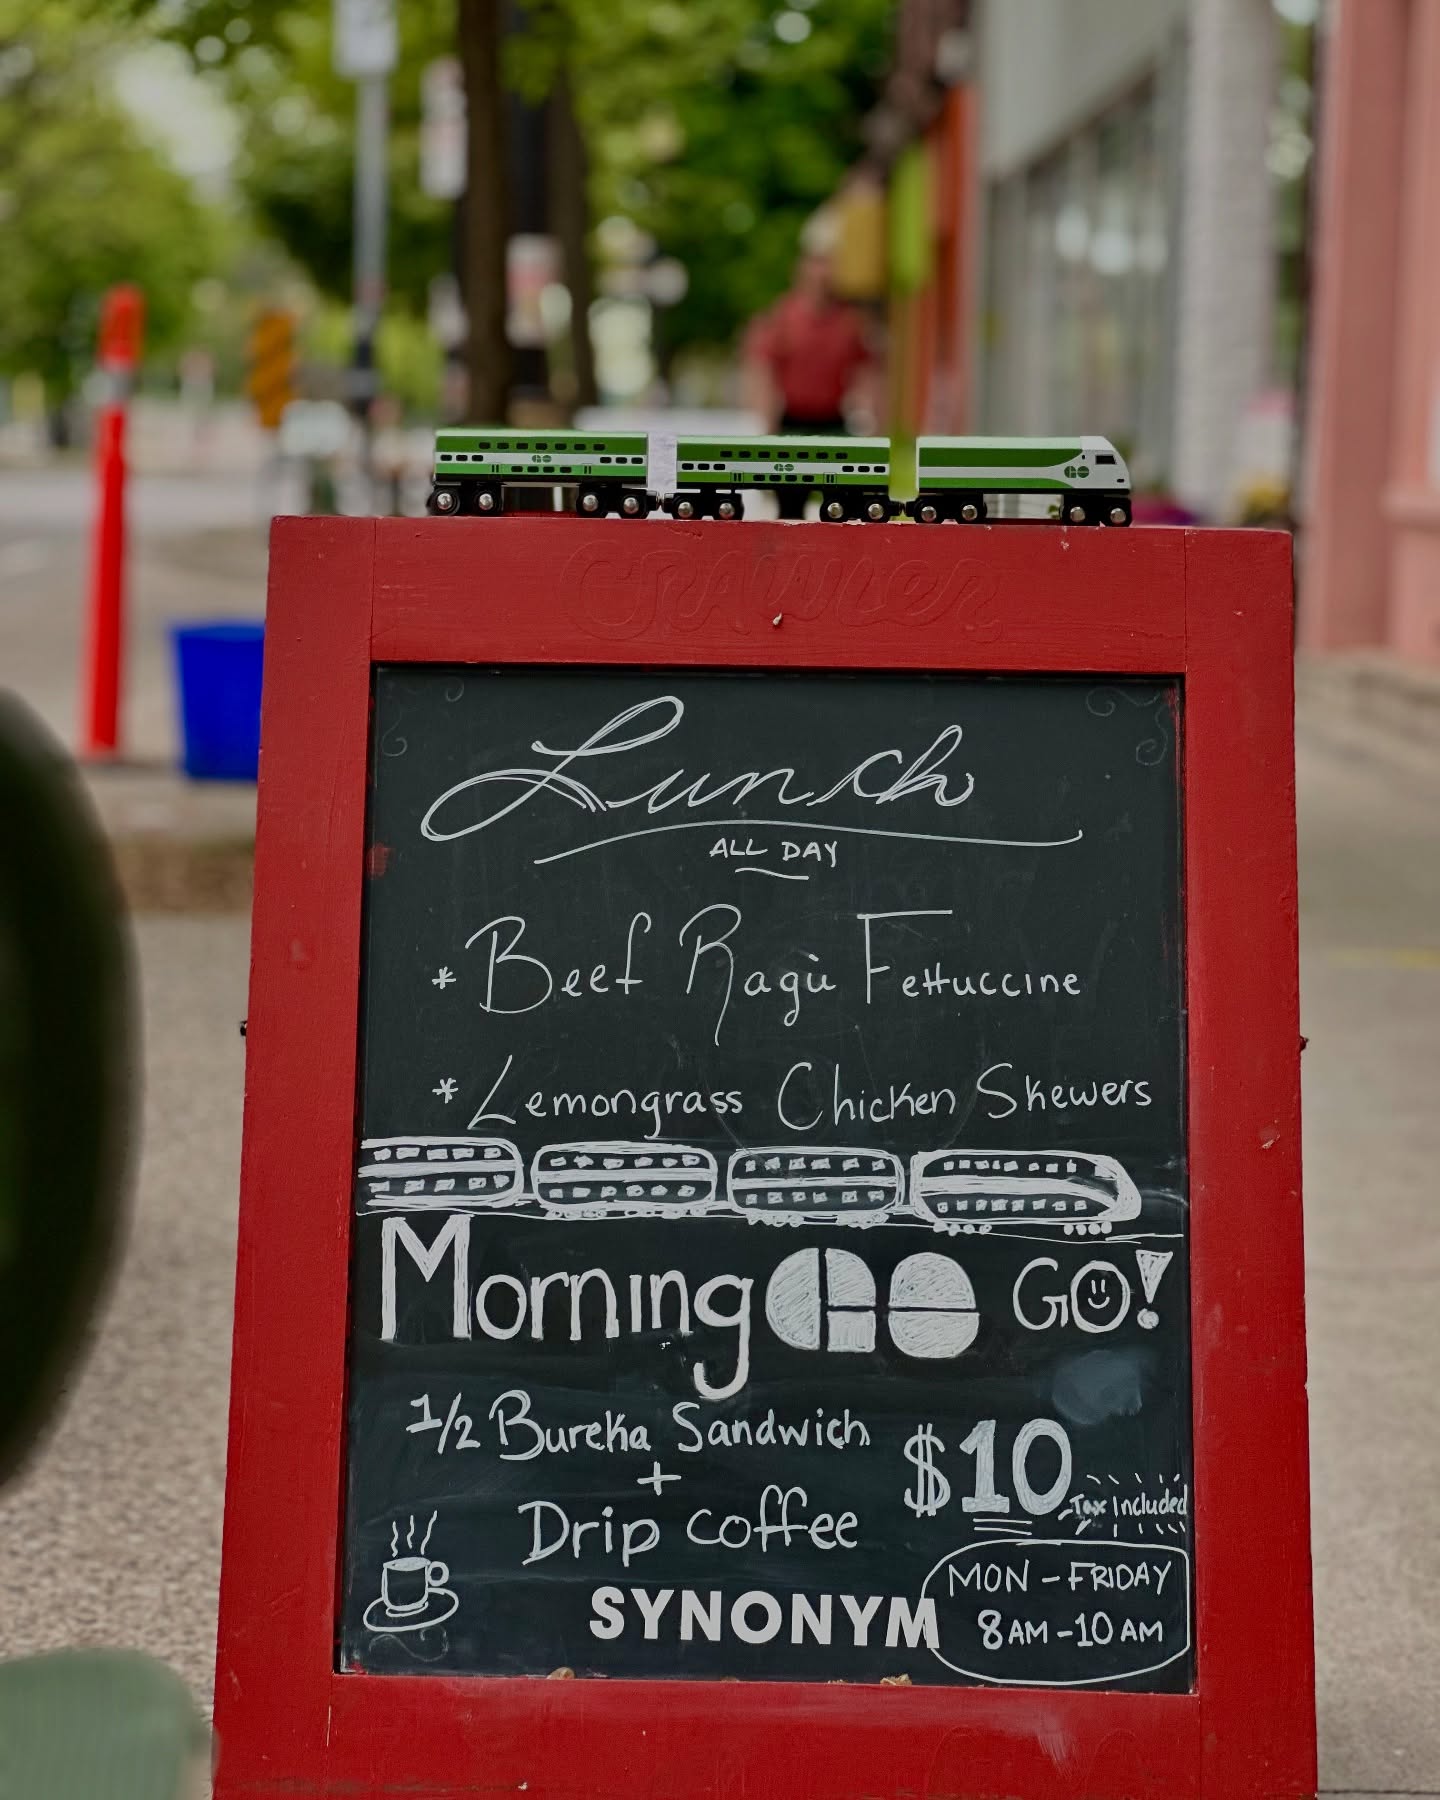 GO
GO
GO
CRAWLER
Lunch
ALL DAY
* Beef Ragù Fettuccine
* Lemongrass Chicken Skewers
Morning GO GO!
1/2 Bureka Sandwich
+
Drip coffee
$10
Tax Included
SYNONYM
MON - FRIDAY
8 AM - 10 AM